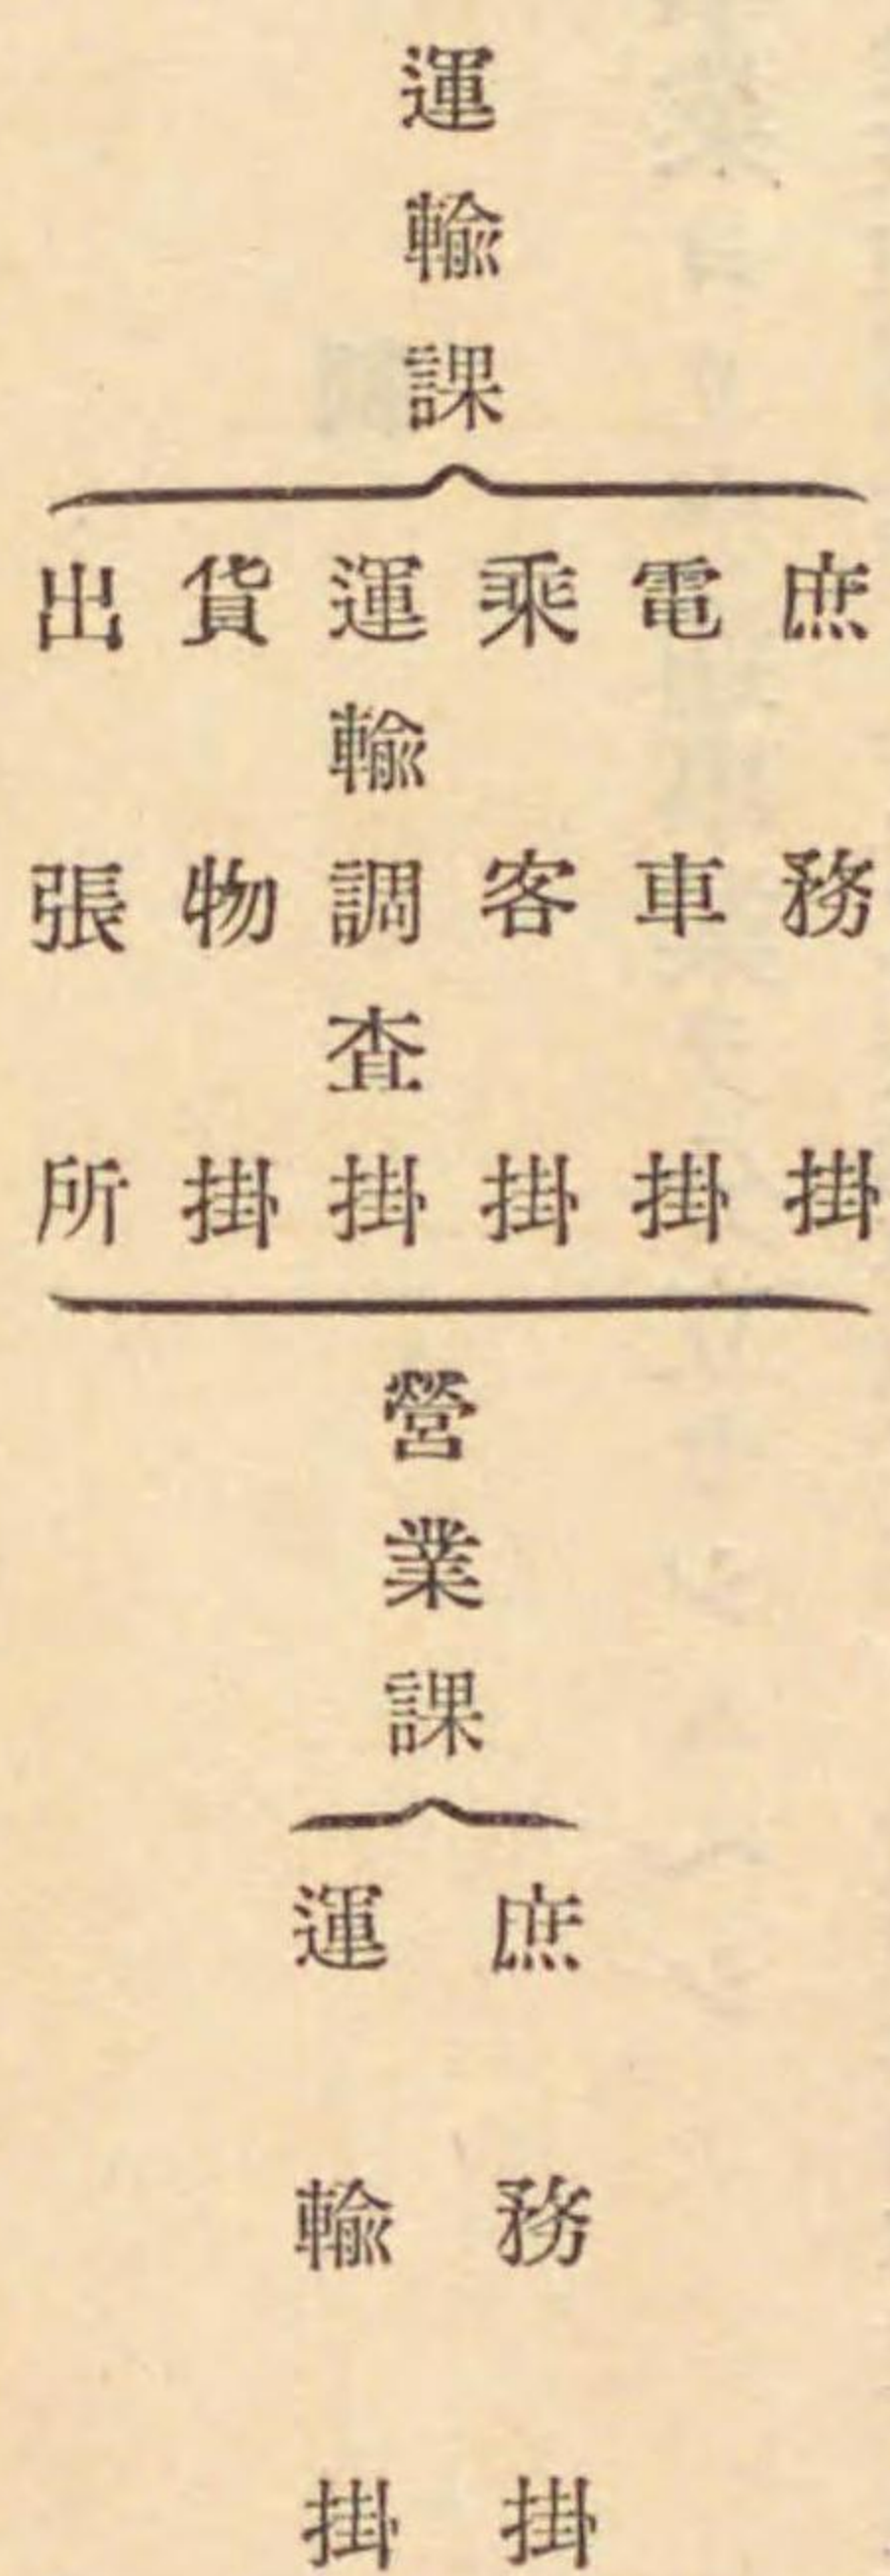 運輸課
庶務掛
電車掛
乘客掛
運輸調査掛
貨物掛
出張所
營業課
庶務掛
運輸掛